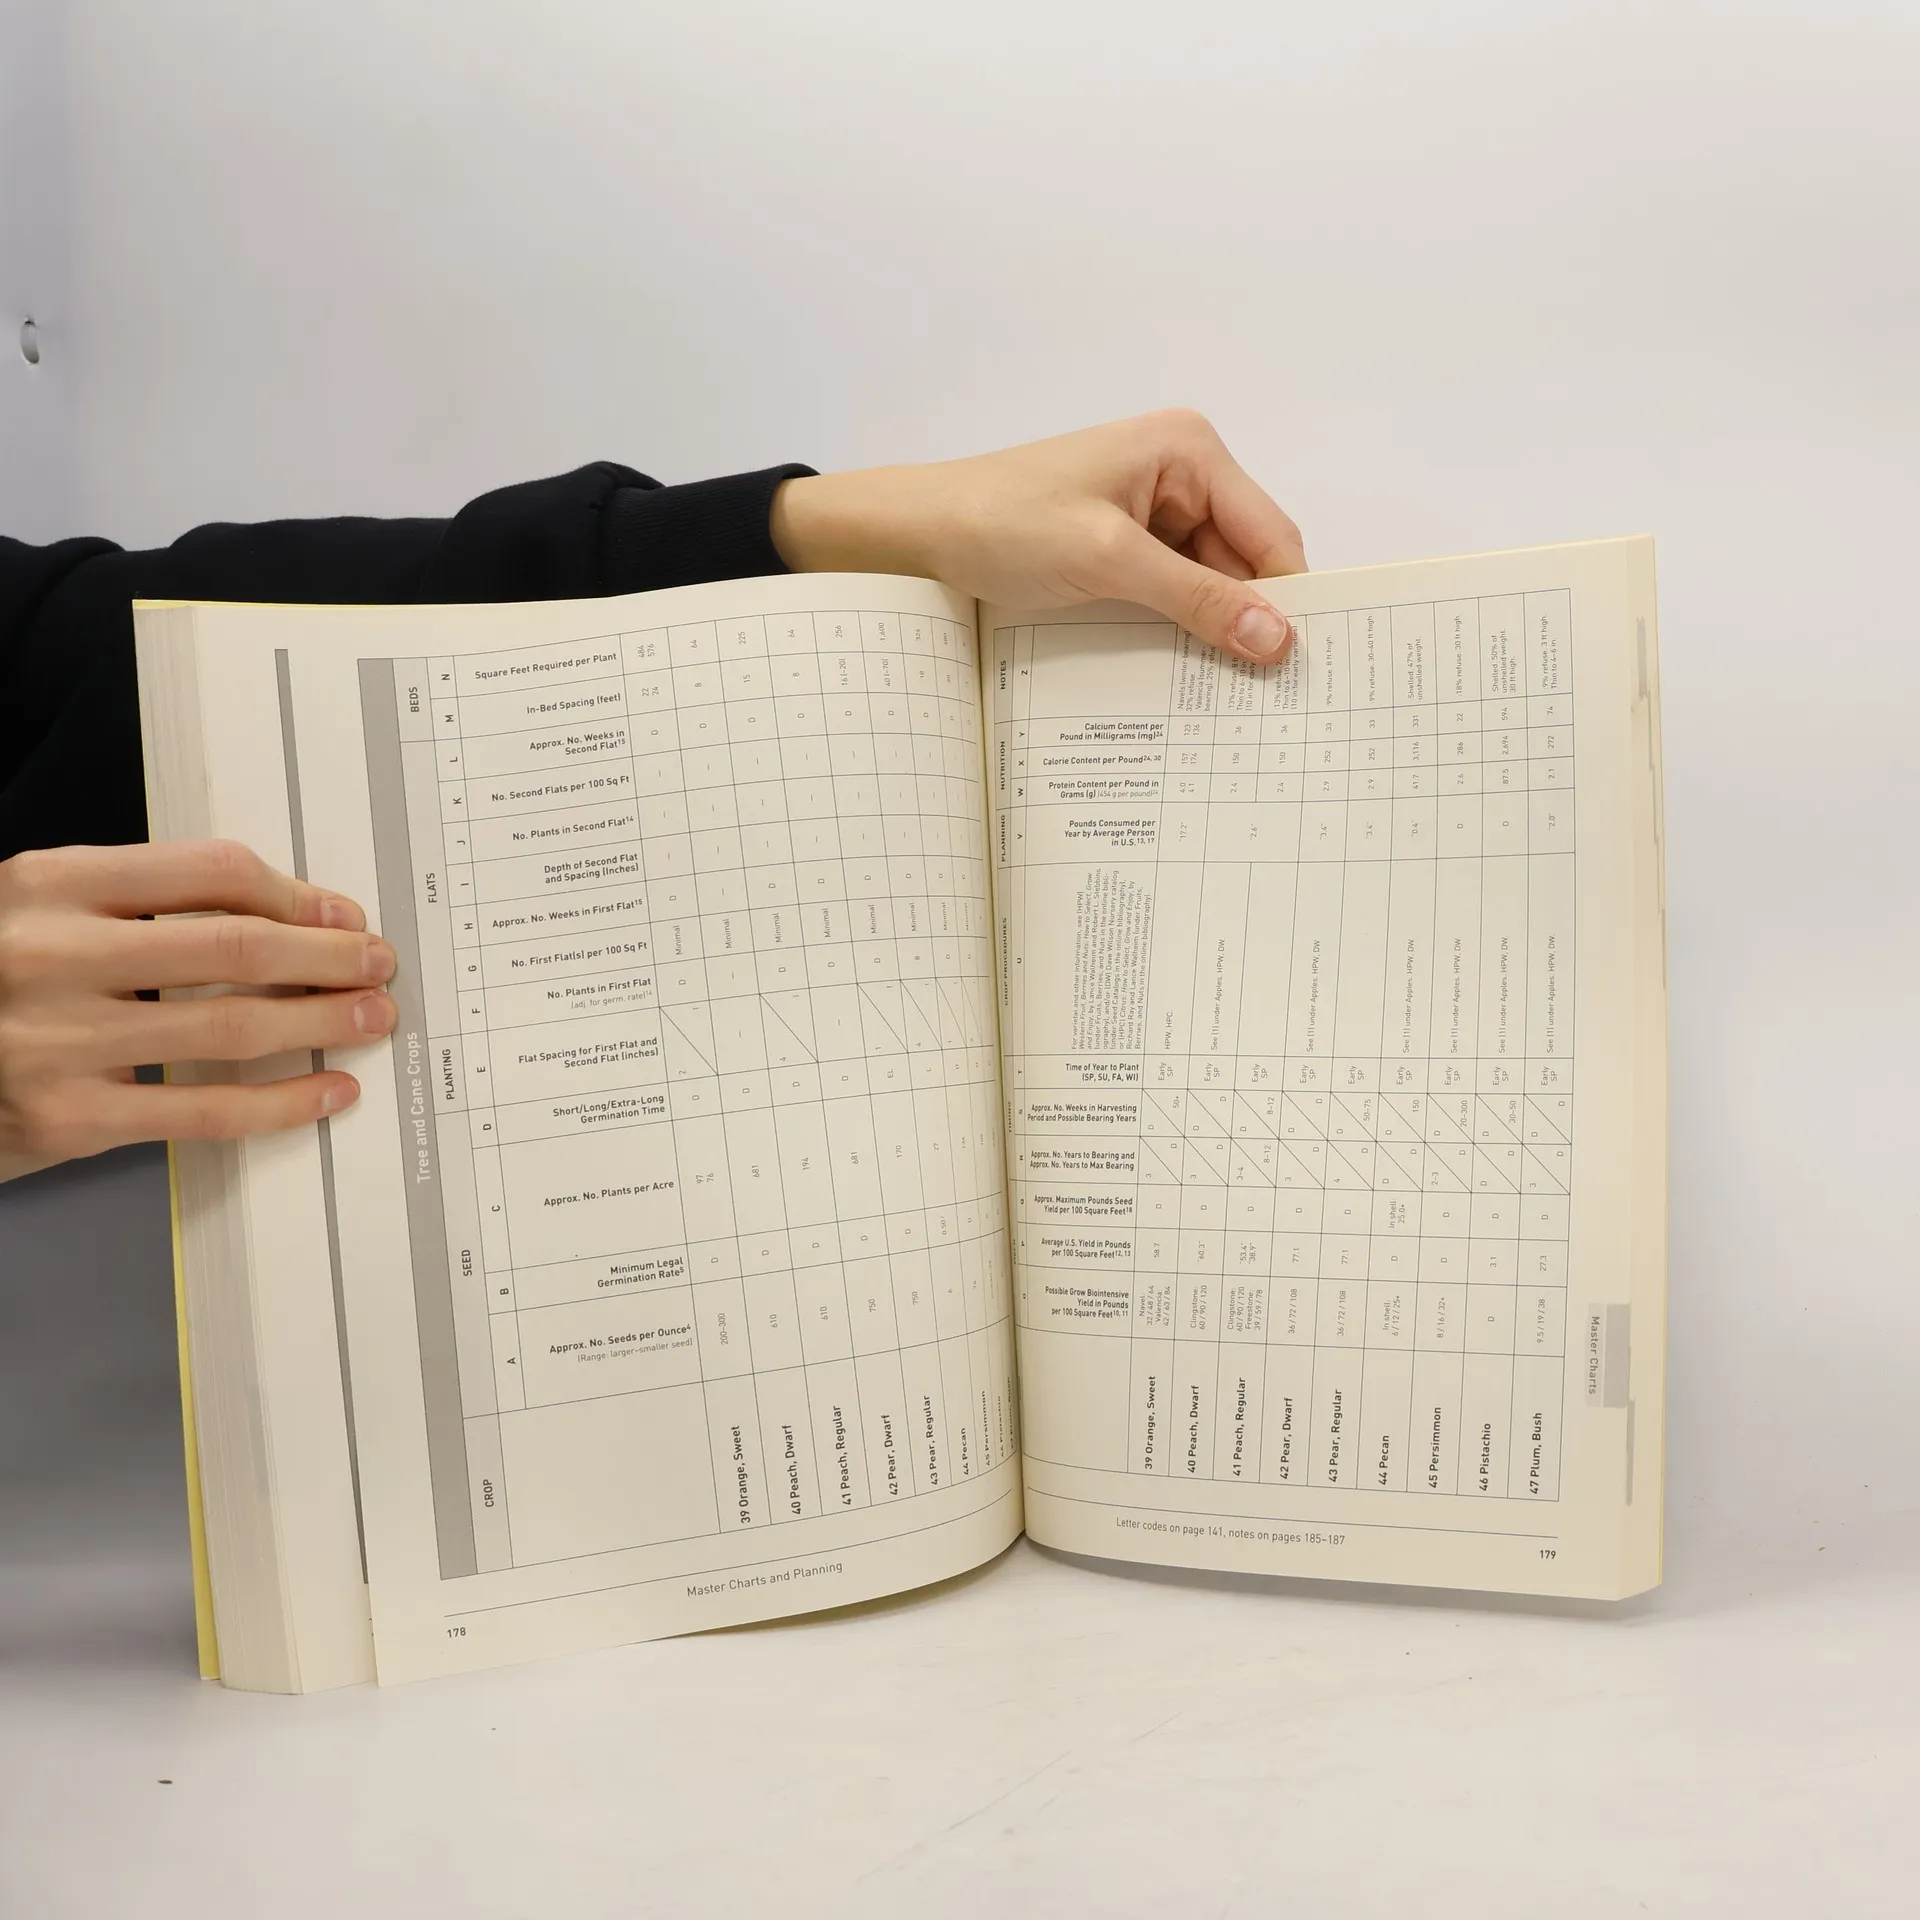 Tree and Cane Crops
SEED
PLANTING
FLATS
BEDS
CROP
A
B
C
D
E
F
G
H
I
J
K
L
M
N
Approx. No. Seeds per Ounce4
(Range: larger–smaller seed)
Minimum Legal
Germination Rate5
Approx. No. Plants per Acre
Short/Long/Extra-Long
Germination Time
Flat Spacing for First Flat and
Second Flat (inches)
No. Plants in First Flat
(adj. for germ. rate)14
No. First Flat(s) per 100 Sq Ft
Approx. No. Weeks in First Flat15
Depth of Second Flat
and Spacing (Inches)
No. Plants in Second Flat14
No. Second Flats per 100 Sq Ft
Approx. No. Weeks in
Second Flat15
In-Bed Spacing (feet)
Square Feet Required per Plant
39 Orange, Sweet
200–300
D
97
76
D
2
D
Minimal
D
—
—
—
D
22
24
484
576
40 Peach, Dwarf
610
D
681
D
—
—
Minimal
—
—
—
—
D
8
64
41 Peach, Regular
610
D
194
D
4
D
Minimal
D
—
—
—
D
15
225
42 Pear, Dwarf
750
D
681
D
D
Minimal
D
—
—
—
D
8
64
43 Pear, Regular
750
D
170
EL
1
D
Minimal
D
—
—
—
D
16 (–20)
256
44 Pecan
45 Persimmon
Master Charts and Planning
178
NUTRITION
NOTES
PLANNING
CROP PROCEDURES
T
U
V
W
X
Y
Z
Possible Grow Biointensive
Yield in Pounds
per 100 Square Feet10, 11
Average U.S. Yield in Pounds
per 100 Square Feet12, 13
Approx. Maximum Pounds Seed
Yield per 100 Square Feet18
Approx. No. Years to Bearing and
Approx. No. Years to Max Bearing
Approx. No. Weeks in Harvesting
Period and Possible Bearing Years
Time of Year to Plant
(SP, SU, FA, WI)
For varietal and other information, see (HPW)
Western Fruit, Berries and Nuts: How to Select, Grow
and Enjoy, by Lance Walheim and Robert L. Stebbins
(under Fruits, Berries, and Nuts in the online bibli-
ography), and/or (DW) Dave Wilson Nursery catalog
(under Seed Catalogs in the online bibliography),
or (HPC) Citrus: How to Select, Grow and Enjoy, by
Richard Ray and Lance Walheim (under Fruits,
Berries, and Nuts in the online bibliography).
Pounds Consumed per
Year by Average Person
in U.S.13, 17
Protein Content per Pound in
Grams (g) (454 g per pound)24
Calorie Content per Pound24, 30
Calcium Content per
Pound in Milligrams (mg)24
39 Orange, Sweet
Navel:
32 / 48 / 64
Valencia:
42 / 63 / 84
58.7
D
3
D
D
50+
Early
SP
HPW, HPC.
17.2
4.0
4.1
157
174
123
136
Navels (winter-bearing)
32% refuse.
Valencia (summer-
bearing): 25% refuse
40 Peach, Dwarf
Clingstone:
60 / 90 / 120
60.3
D
3
D
D
D
Early
SP
See [1] under Apples. HPW, DW
2.6
2.4
150
36
13% refuse. 8 ft
Thin to 6–10 in
(10 in for early
41 Peach, Regular
Clingstone:
60 / 90 / 120
Freestone:
39 / 59 / 78
53.4
38.9
D
3–4
8–12
D
8–12
Early
SP
2.4
150
36
13% refuse.
Thin to 6–10 in
(10 in for early varieties)
42 Pear, Dwarf
36 / 72 / 108
77.1
D
3
D
D
D
Early
SP
See [1] under Apples. HPW, DW
3.4
2.9
252
33
9% refuse. 8 ft high.
43 Pear, Regular
36 / 72 / 108
77.1
D
4
D
D
50–75
Early
SP
3.4
2.9
252
33
9% refuse. 30–40 ft high
44 Pecan
In shell:
6 / 12 / 25+
D
In shell:
25.0+
D
D
D
150
Early
SP
See [1] under Apples. HPW, DW
0.4
41.7
3,116
331
Shelled: 47% of
unshelled weight.
45 Persimmon
8 / 16 / 32+
D
D
2–3
D
D
20–300
Early
SP
See [1] under Apples. HPW, DW
D
2.6
286
22
18% refuse. 30 ft high.
46 Pistachio
D
3.1
D
D
D
D
30–50
Early
SP
See [1] under Apples. HPW, DW
D
87.5
2,694
594
Shelled: 50% of
unshelled weight.
30 ft high.
47 Plum, Bush
9.5 / 19 / 38
27.3
D
3
D
D
D
Early
SP
See [1] under Apples. HPW, DW
2.0
2.1
272
74
9% refuse. 3 ft high.
Thin to 4–6 in.
Letter codes on page 141, notes on pages 185–187
179
Master Charts